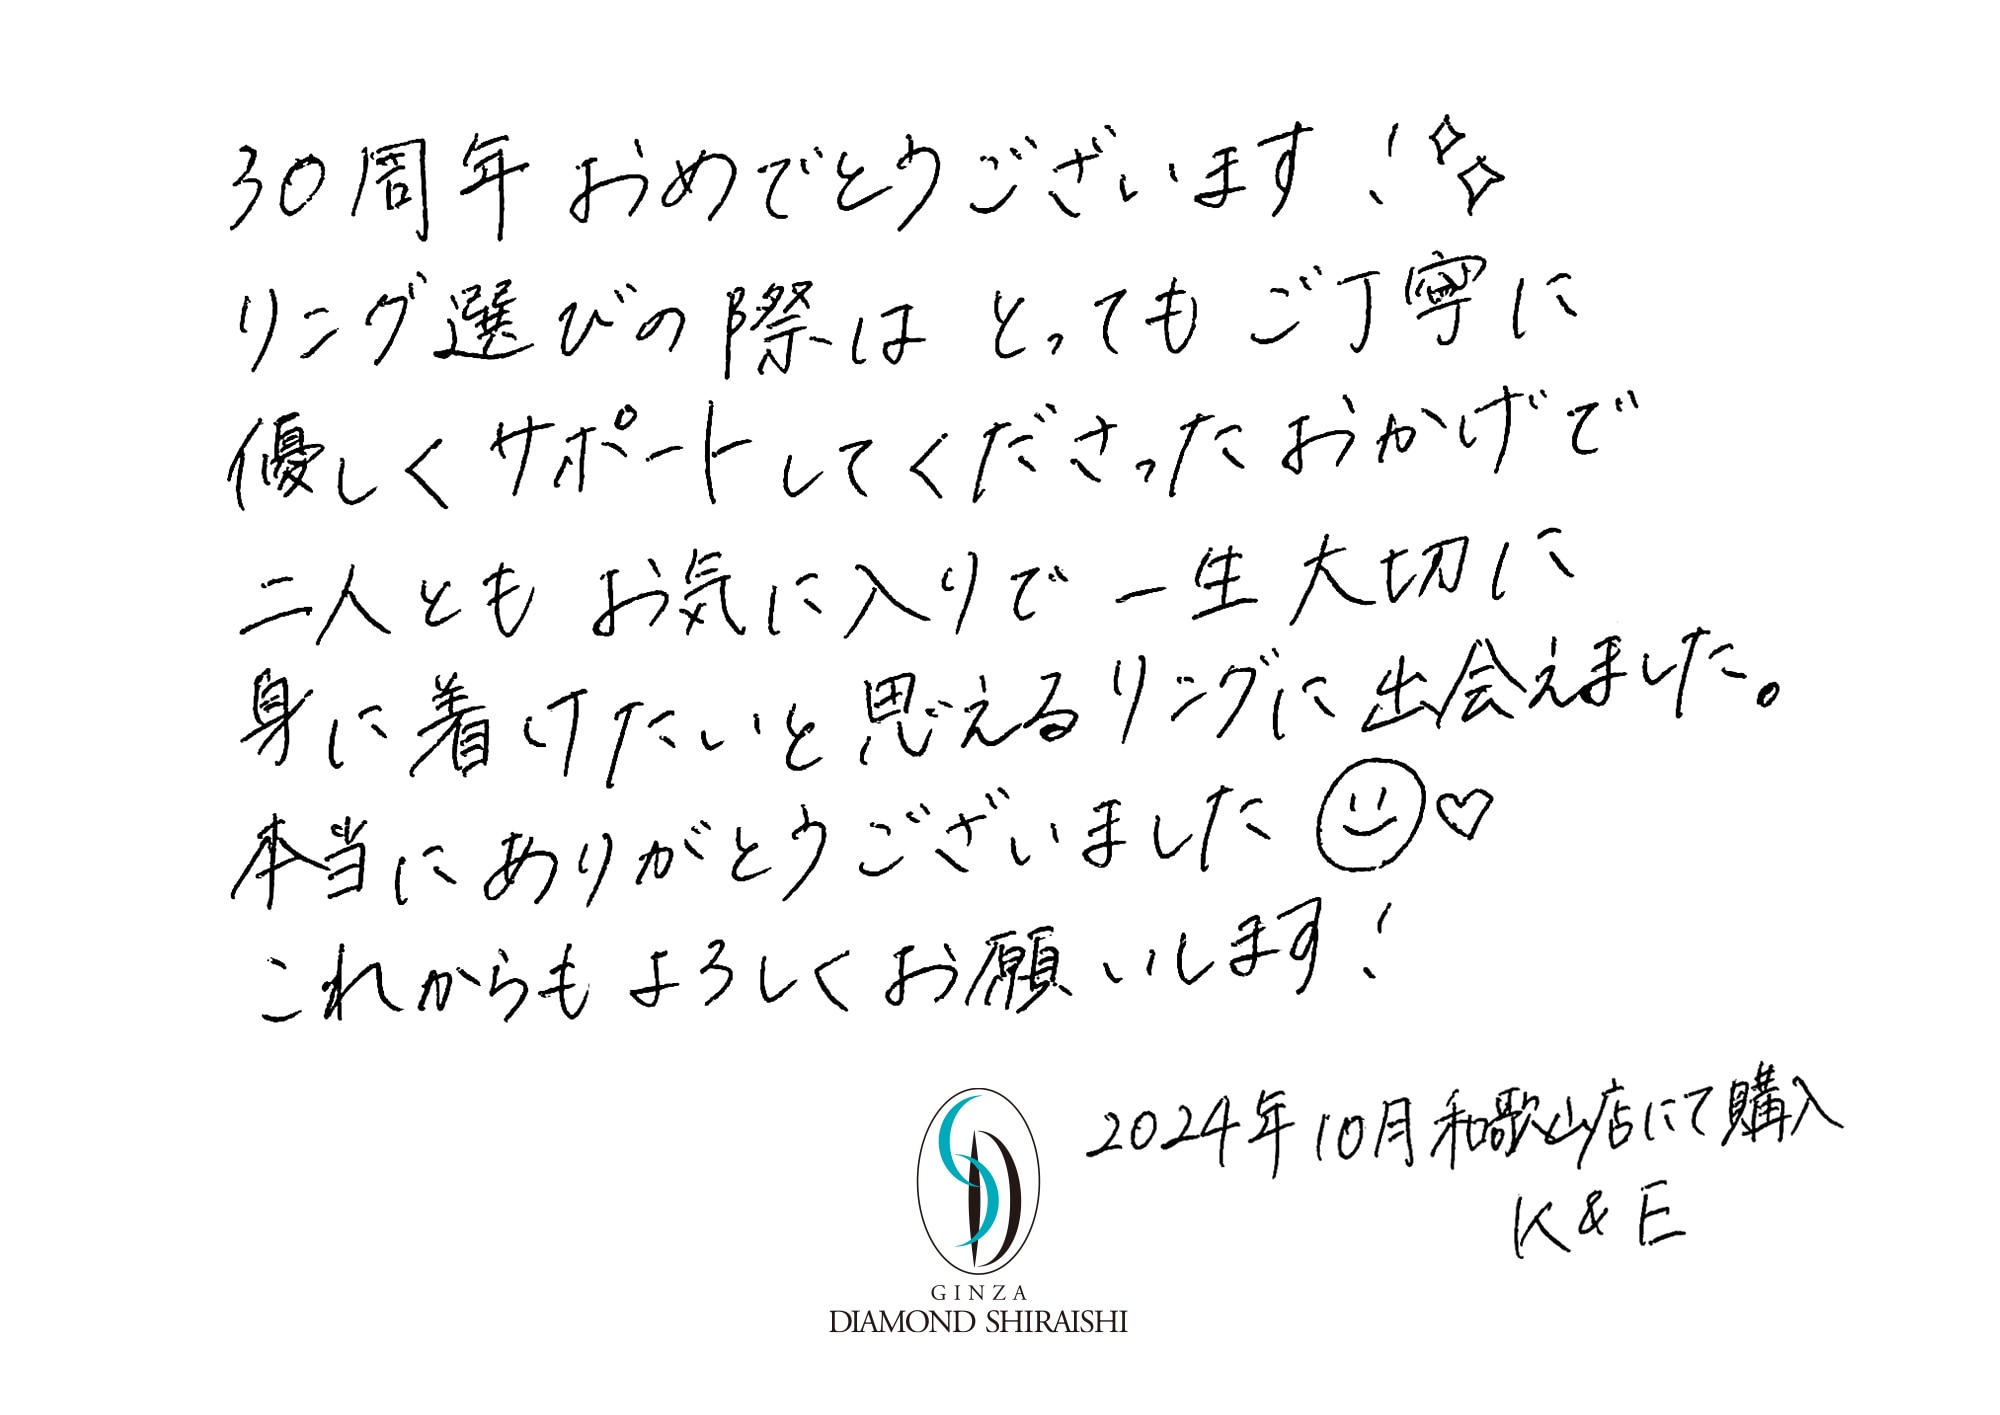 30周年おめでとうございます！
リング選びの際は とっても ご丁寧に
優しく サポートしてくださったおかげで
二人とも お気に入りで 一生 大切に
身に着けたいと思えるリングに出会えました。
本当にありがとうございました
これからもよろしくお願いします！
2024年10月和歌山店にて購入
K & E
GINZA
DIAMOND SHIRAISHI